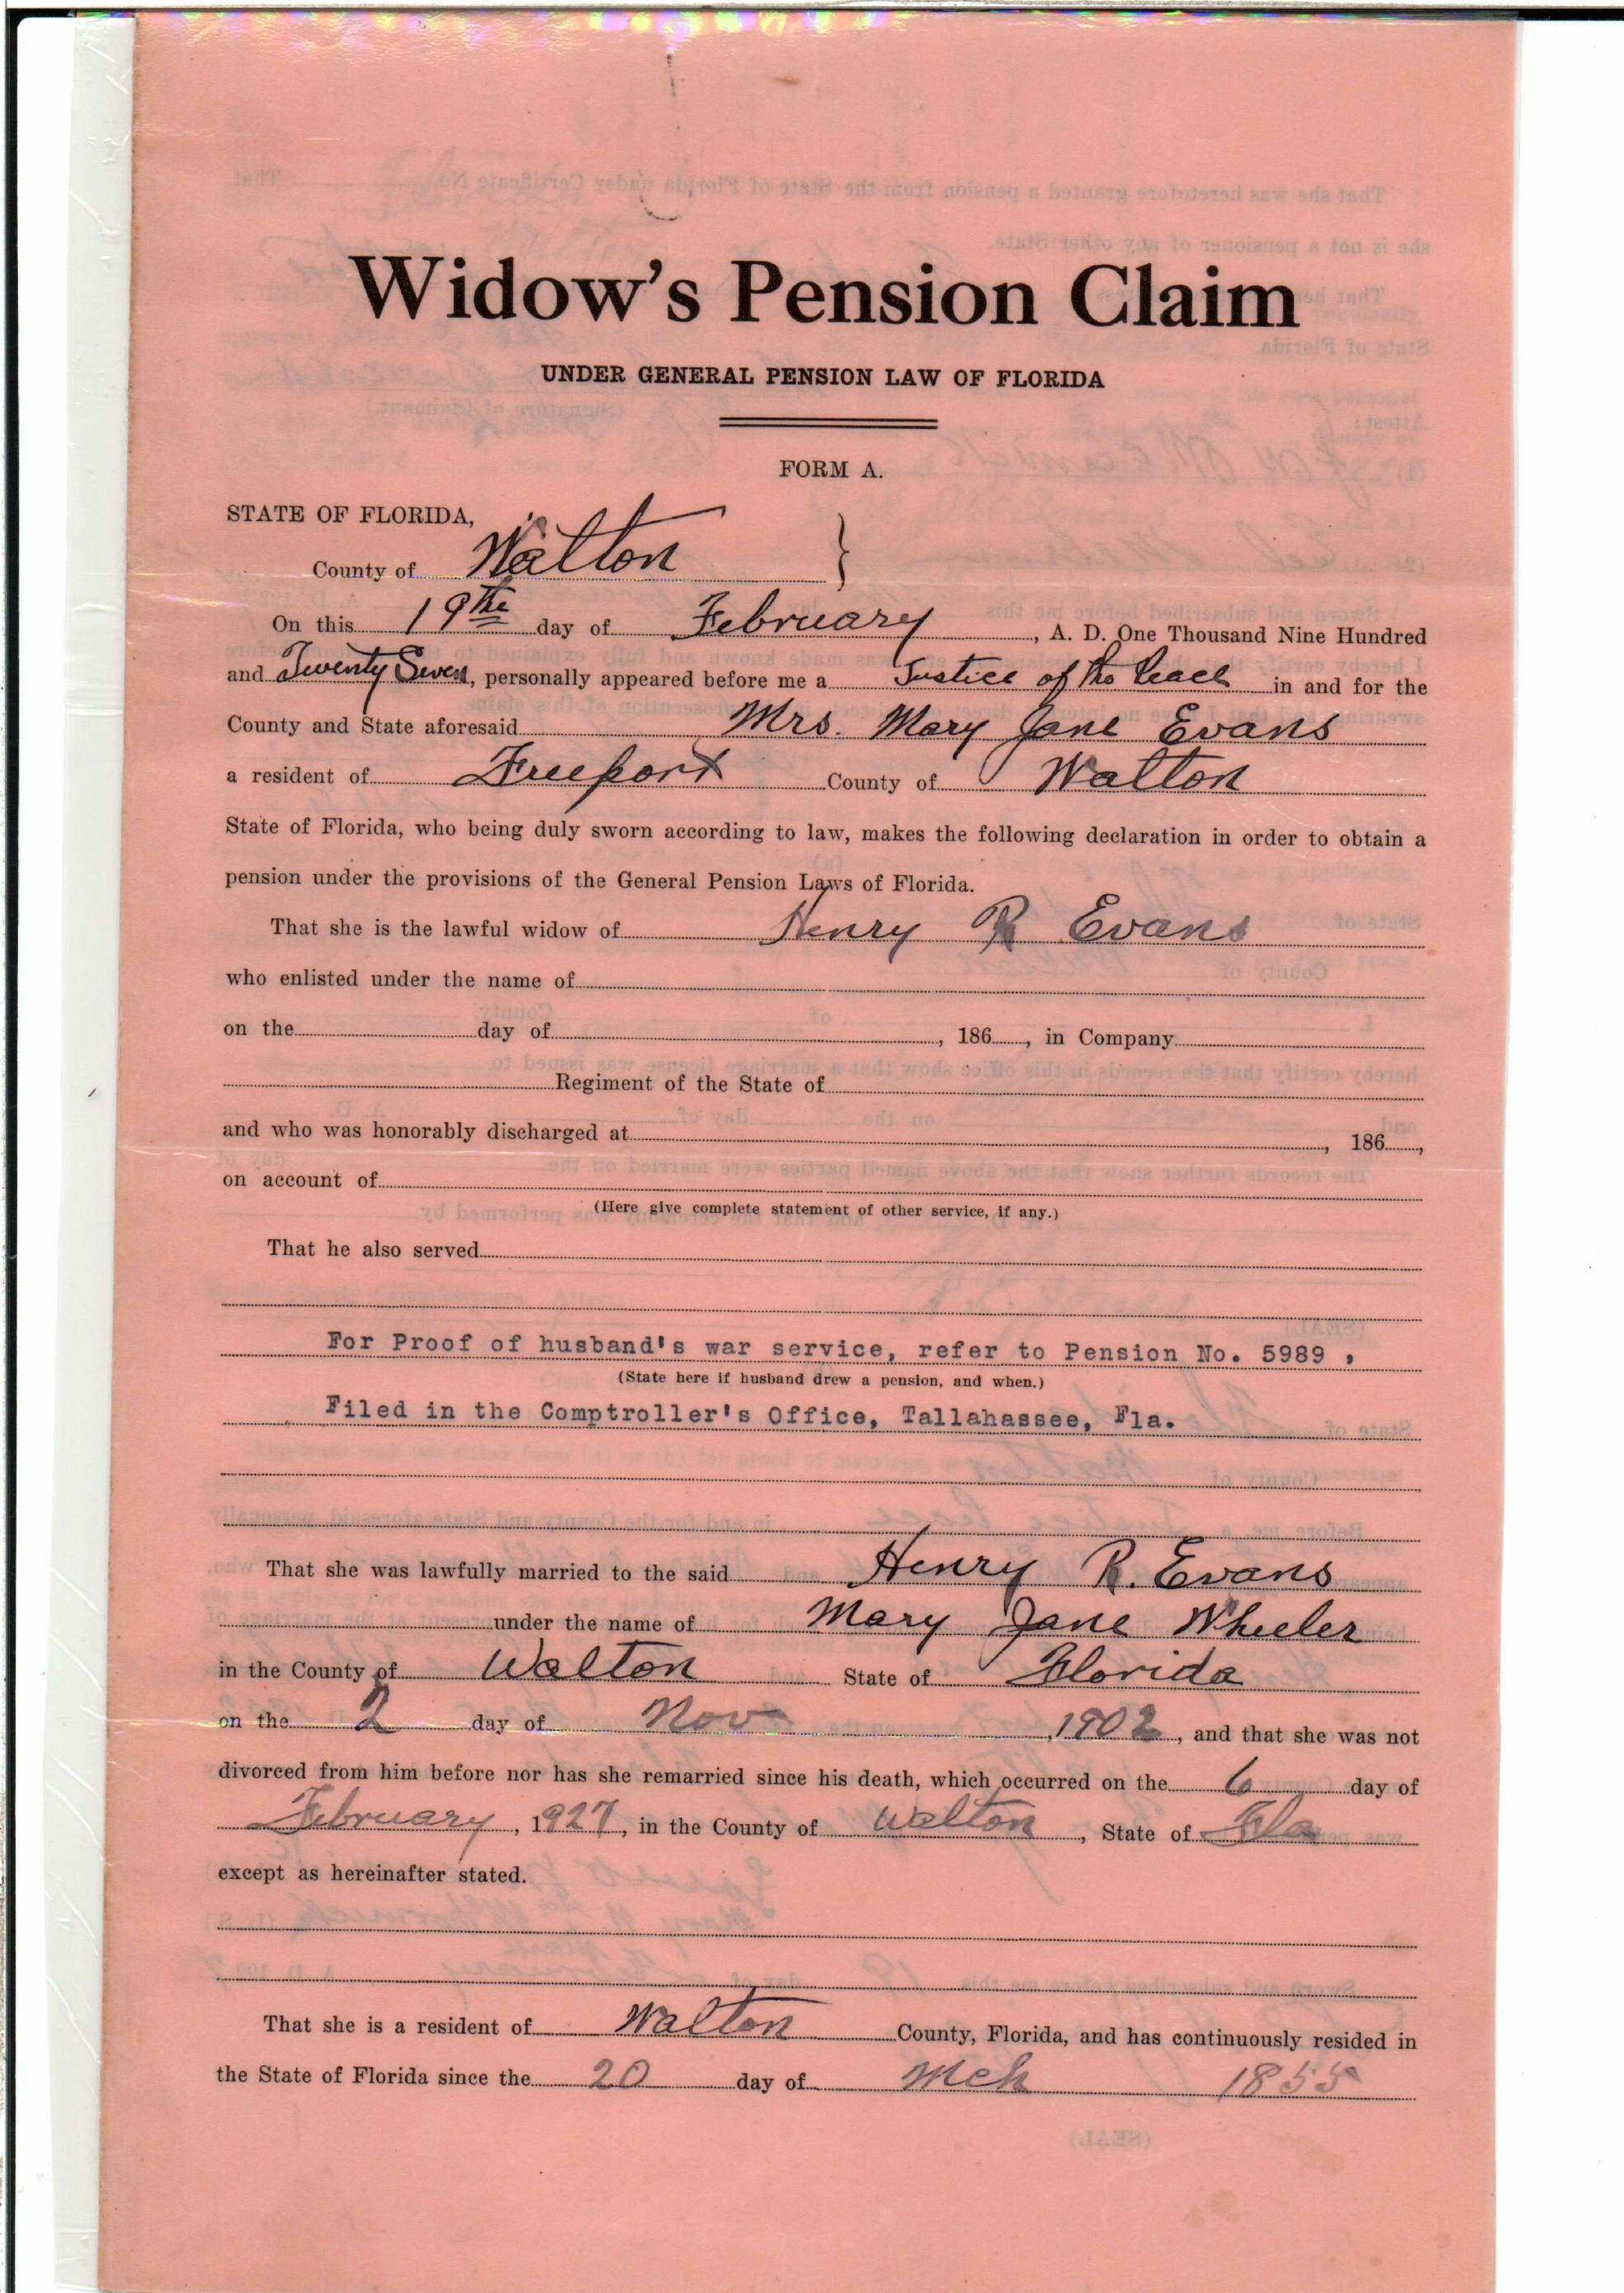 Widow's Pension Claim
UNDER GENERAL PENSION LAW OF FLORIDA
FORM A.
STATE OF FLORIDA,
County of Walton }
On this 19the day of February, A. D. One Thousand Nine Hundred
and Twenty Seven, personally appeared before me a Justice of the Peace in and for the
County and State aforesaid Mrs. Mary Jane Evans
a resident of Freeport County of Walton
State of Florida, who being duly sworn according to law, makes the following declaration in order to obtain a
pension under the provisions of the General Pension Laws of Florida.
That she is the lawful widow of Henry R Evans
who enlisted under the name of
on the day of , 186 , in Company
Regiment of the State of
and who was honorably discharged at , 186 ,
on account of
(Here give complete statement of other service, if any.)
That he also served
For Proof of husband's war service, refer to Pension No. 5989 ,
(State here if husband drew a pension, and when.)
Filed in the Comptroller's Office, Tallahassee, Fla.
That she was lawfully married to the said Henry R. Evans
under the name of Mary Jane Wheeler
in the County of Walton State of Florida
on the 2 day of Nov , 1902, and that she was not
divorced from him before nor has she remarried since his death, which occurred on the 6 day of
February, 1927, in the County of Walton, State of Fla
except as hereinafter stated.
That she is a resident of Walton County, Florida, and has continuously resided in
the State of Florida since the 20 day of Mch 1855